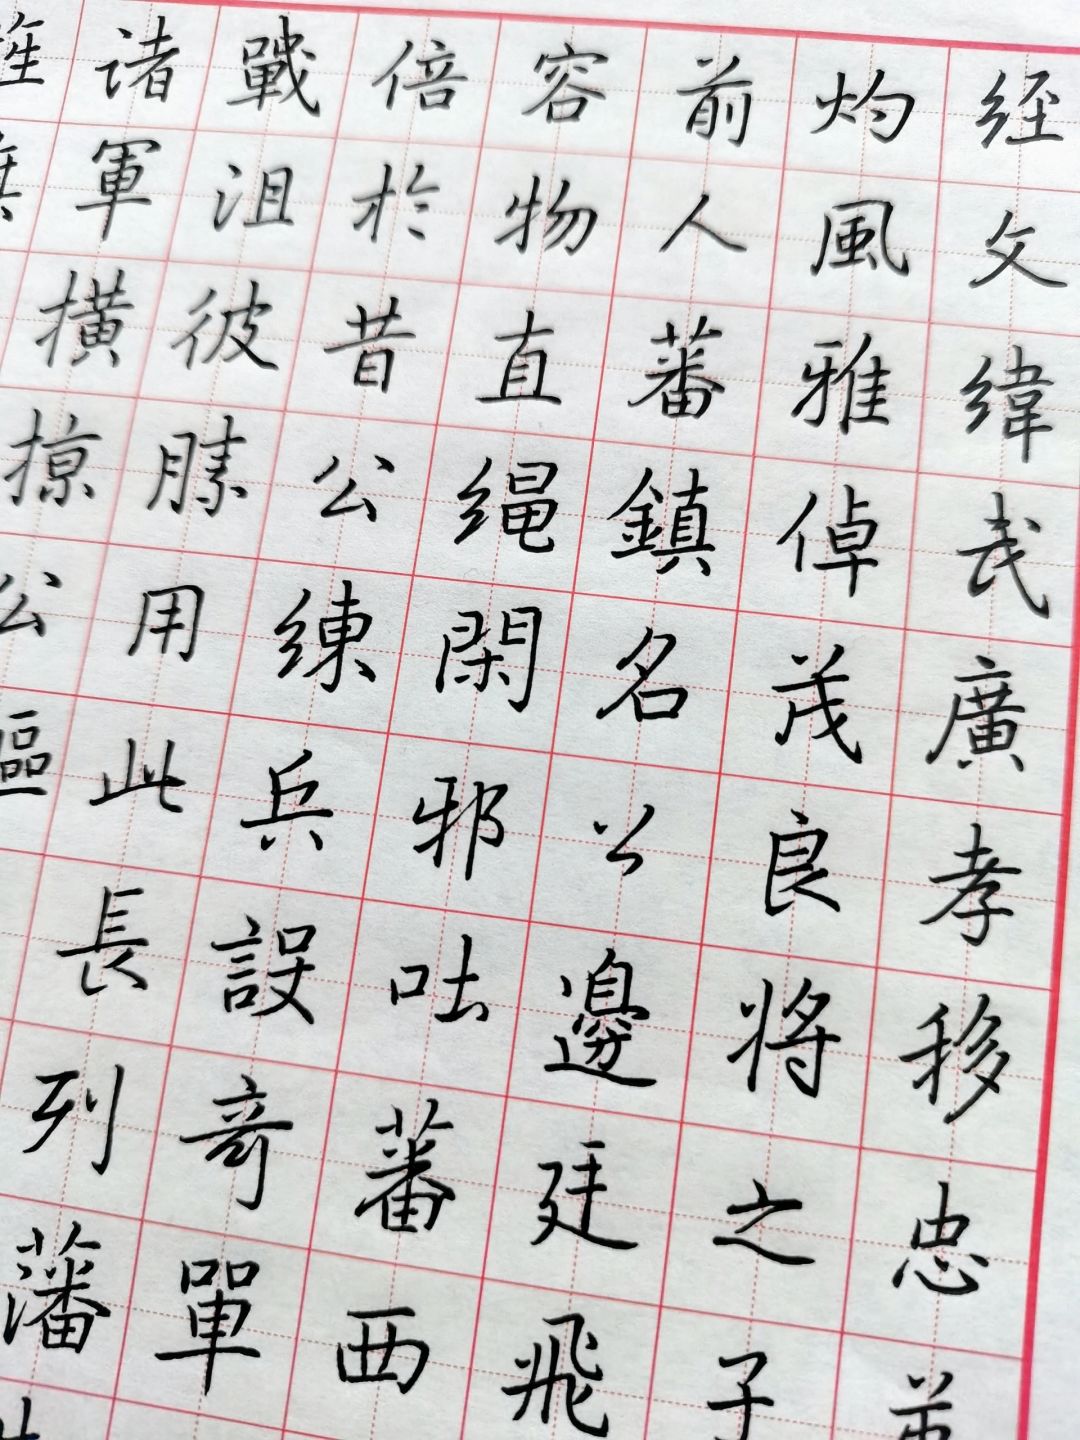 经文緯武廣孝移忠
灼風雅倬茂良将之子
前人蕃鎮名公邊廷飛
容物直绳閑邪吐蕃西
倍於昔公练兵設奇單
戰沮彼勝用此長列藩
诸軍橫掠公